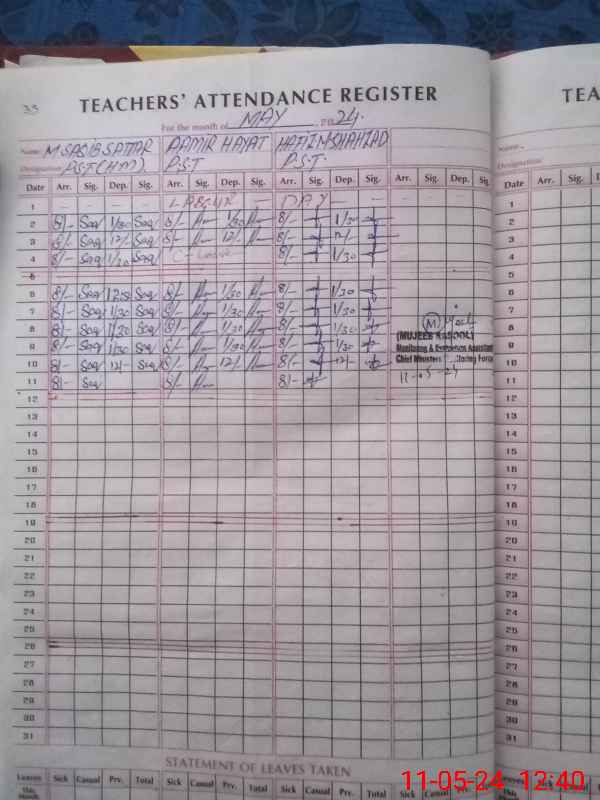 33
TEACHERS' ATTENDANCE REGISTER
For the month of MAY 2024.
Name M. SAQIB SATTAR AAMIR HAYAT
Designation P.S.T (HM) P.S.T P.S.T.
Date Arr. Sig. Dep. Sig. Arr. Sig. Dep. Sig. Arr. Sig. Dep. Sig. Arr. Sig. Dep. Sig.
1 LABOUR DAY
2 8/- Saq 1/30 Saq 8/- 1/30 8/- 1/30
3 8/- Saq 12/- Saq 8/- 12/- 8/- 12/-
4 8/- Saq 1/30 Saq C-Leave 8/- 1/30
5
6 8/- Saq Saq 8/- 1/30 8/- 1/30
7 8/- Saq 1/30 Saq 8/- 1/30 8/- 1/30
8 8/- Saq 1/30 Saq 8/- 1/30 8/- 1/30
9 8/- Saq 1/30 Saq 8/- 1/30 8/- 1/30
10 8/- Saq 12/- Saq 8/- 12/- 8/- 12/-
11 8/- Saq 8/- 8/-
(MUJEEB RASOOL)
Monitoring & Evaluation Assistant
Chief Ministers Monitoring Force
11-05-24
12
13
14
15
16
17
18
19
20
21
22
23
24
25
26
27
28
29
30
31
STATEMENT OF LEAVES TAKEN
Leaves Sick Casual Prv. Total Sick Casual Prv. Total Sick Casual Prv. Total
This
Month
TEA
Name
Designation
Date Arr. Sig. Dep.
1
2
3
4
5
6
7
8
9
10
11
12
13
14
15
16
17
18
19
20
21
22
23
24
25
26
27
28
29
30
31
11-05-24 12:40